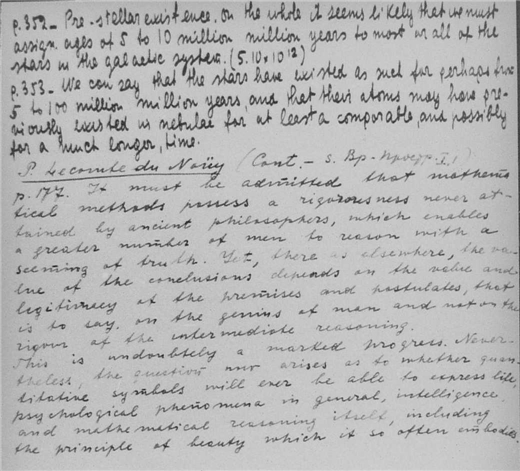 p.352_ Pre-stellar existence. On the whole it seems likely that we must
assign ages of 5 to 10 million million years to most or all of the
stars in the galactic system. (5.10¹²-10¹³)
p.353_ We can say that the stars have existed as such for perhaps from
5 to 100 million million years, and that their atoms may have pre-
viously existed in nebulae for at least a comparable, and possibly
for a much longer, time.
P. Lecomte du Noüy (Cont. –
p. 177. It must be admitted that mathema
tical methods possess a rigorousness never at-
tained by ancient philosophers, which enables
a greater number of men to reason with a
seeming of truth. Yet, there as elsewhere, the va-
lue of the conclusions depends on the value and
legitimacy of the premises and postulates, that
is to say. on the genius of man and not on the
rigour of the intermediate reasoning.
This is undoubtely a marked progress. Never-
theless, the question now arises as to whether quan-
titative symbols will ever be able to express life,
psychological phenomena in general, intelligence,
and mathematical reasoning itself, including
the principle of beauty which it so often embodies.